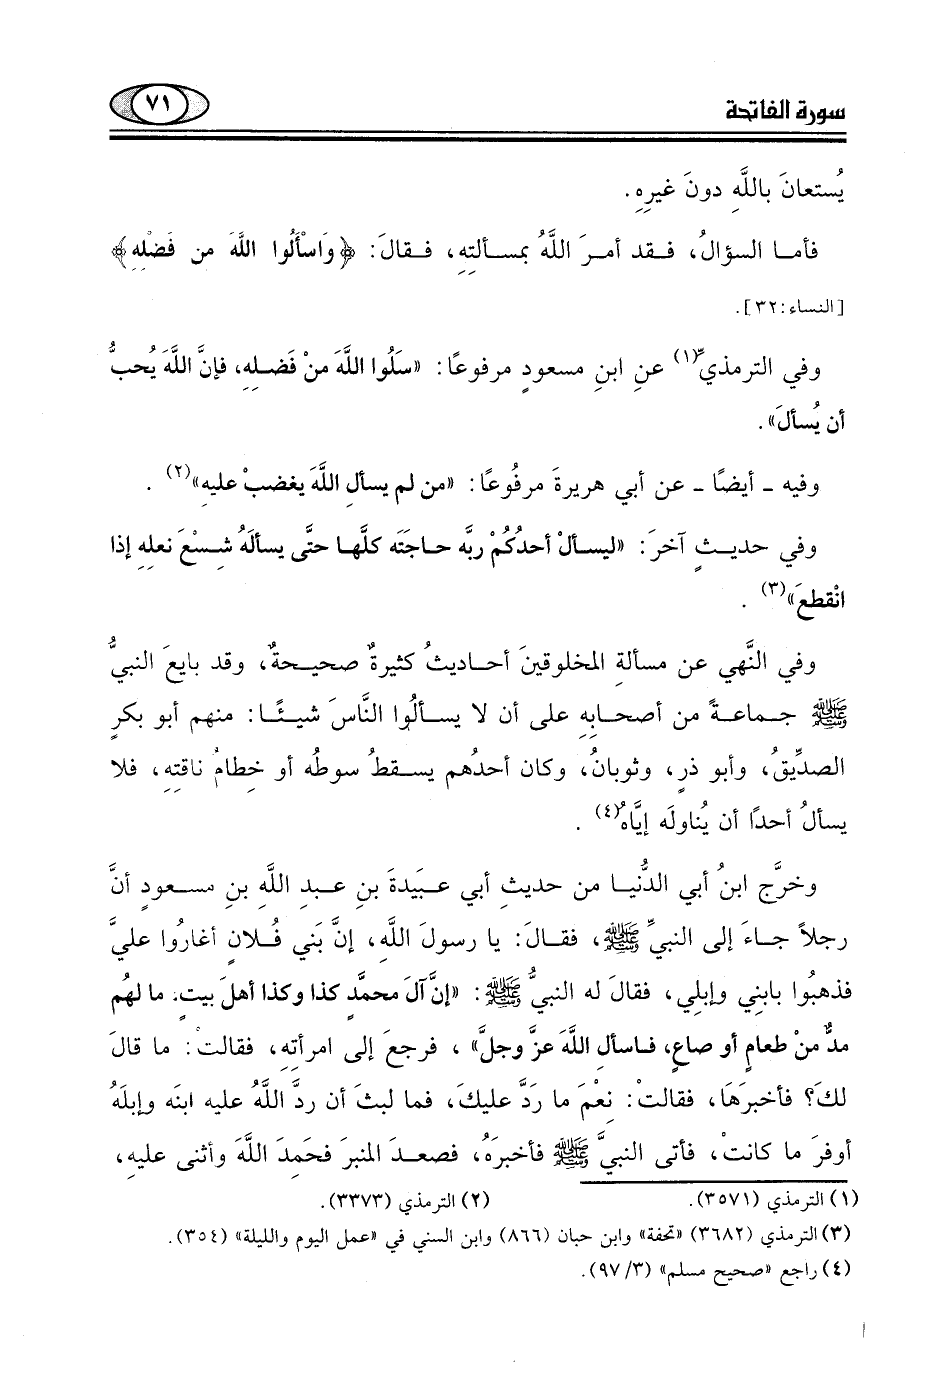 سورة الفاتحة ٧١
يُستعانَ باللَّهِ دونَ غيرِهِ.
فأما السؤالُ، فقد أمرَ اللَّهُ بمسألتِهِ، فقالَ: ﴿وَاسْأَلُوا اللَّهَ من فَضْلِهِ﴾
[النساء:٣٢].
وفي الترمذيِّ(١) عنِ ابنِ مسعودٍ مرفوعًا: «سَلُوا اللَّهَ مِنْ فَضلِهِ، فإنَّ اللَّهَ يُحبُّ
أن يُسألَ».
وفيه - أيضًا - عن أبي هريرةَ مرفُوعًا: «من لم يسألِ اللَّهَ يغضبْ عليهِ»(٢) .
وفي حديثٍ آخرَ: «ليسألْ أحدُكُمْ ربَّه حاجتَه كلَّها حتَّى يسألَهُ شِسْعَ نعلِهِ إذا
انْقطعَ»(٣) .
وفي النَّهي عن مسألةِ المخلوقينَ أحاديثُ كثيرةٌ صحيحةٌ، وقد بايعَ النبيُّ
ﷺ جماعةً من أصحابِهِ على أن لا يسألُوا النَّاسَ شيئًا: منهم أبو بكرٍ
الصدِّيقُ، وأبو ذرٍ، وثوبانُ، وكان أحدُهم يسقطُ سوطُه أو خِطامُ ناقتِهِ، فلا
يسألُ أحدًا أن يُناولَه إيَّاهُ(٤) .
وخرَّج ابنُ أبي الدُّنيا من حديثِ أبي عبَيدةَ بنِ عبدِ اللَّهِ بنِ مسعودٍ أنَّ
رجلاً جاءَ إلى النبيِّ ﷺ، فقالَ: يا رسولَ اللَّهِ، إنَّ بَني فُلانٍ أغارُوا عليَّ
فذهبُوا بابني وإبلِي، فقالَ له النبيُّ ﷺ: «إنَّ آلَ محمَّدٍ كذا وكذا أهلَ بيتٍ، ما لهُم
مدٌّ منْ طعامٍ أو صاعٍ، فاسألِ اللَّهَ عزَّ وجلَّ» ، فرجعَ إلى امرأتِهِ، فقالتْ: ما قالَ
لكَ؟ فأخبرَهَا، فقالتْ: نِعْمَ ما رَدَّ عليكَ، فما لبثَ أن ردَّ اللَّهُ عليه ابنَه وإبلَهُ
أوفرَ ما كانتْ، فأتى النبيَّ ﷺ فأخبرَهُ، فصعدَ المنبرَ فحَمِدَ اللَّهَ وأثنى عليهِ،
(١) الترمذي (٣٥٧١). (٢) الترمذي (٣٣٧٣).
(٣) الترمذي (٣٦٨٢) «تحفة» وابن حبان (٨٦٦) وابن السني في «عمل اليوم والليلة» (٣٥٤).
(٤) راجع «صحيح مسلم» (٩٧/٣).